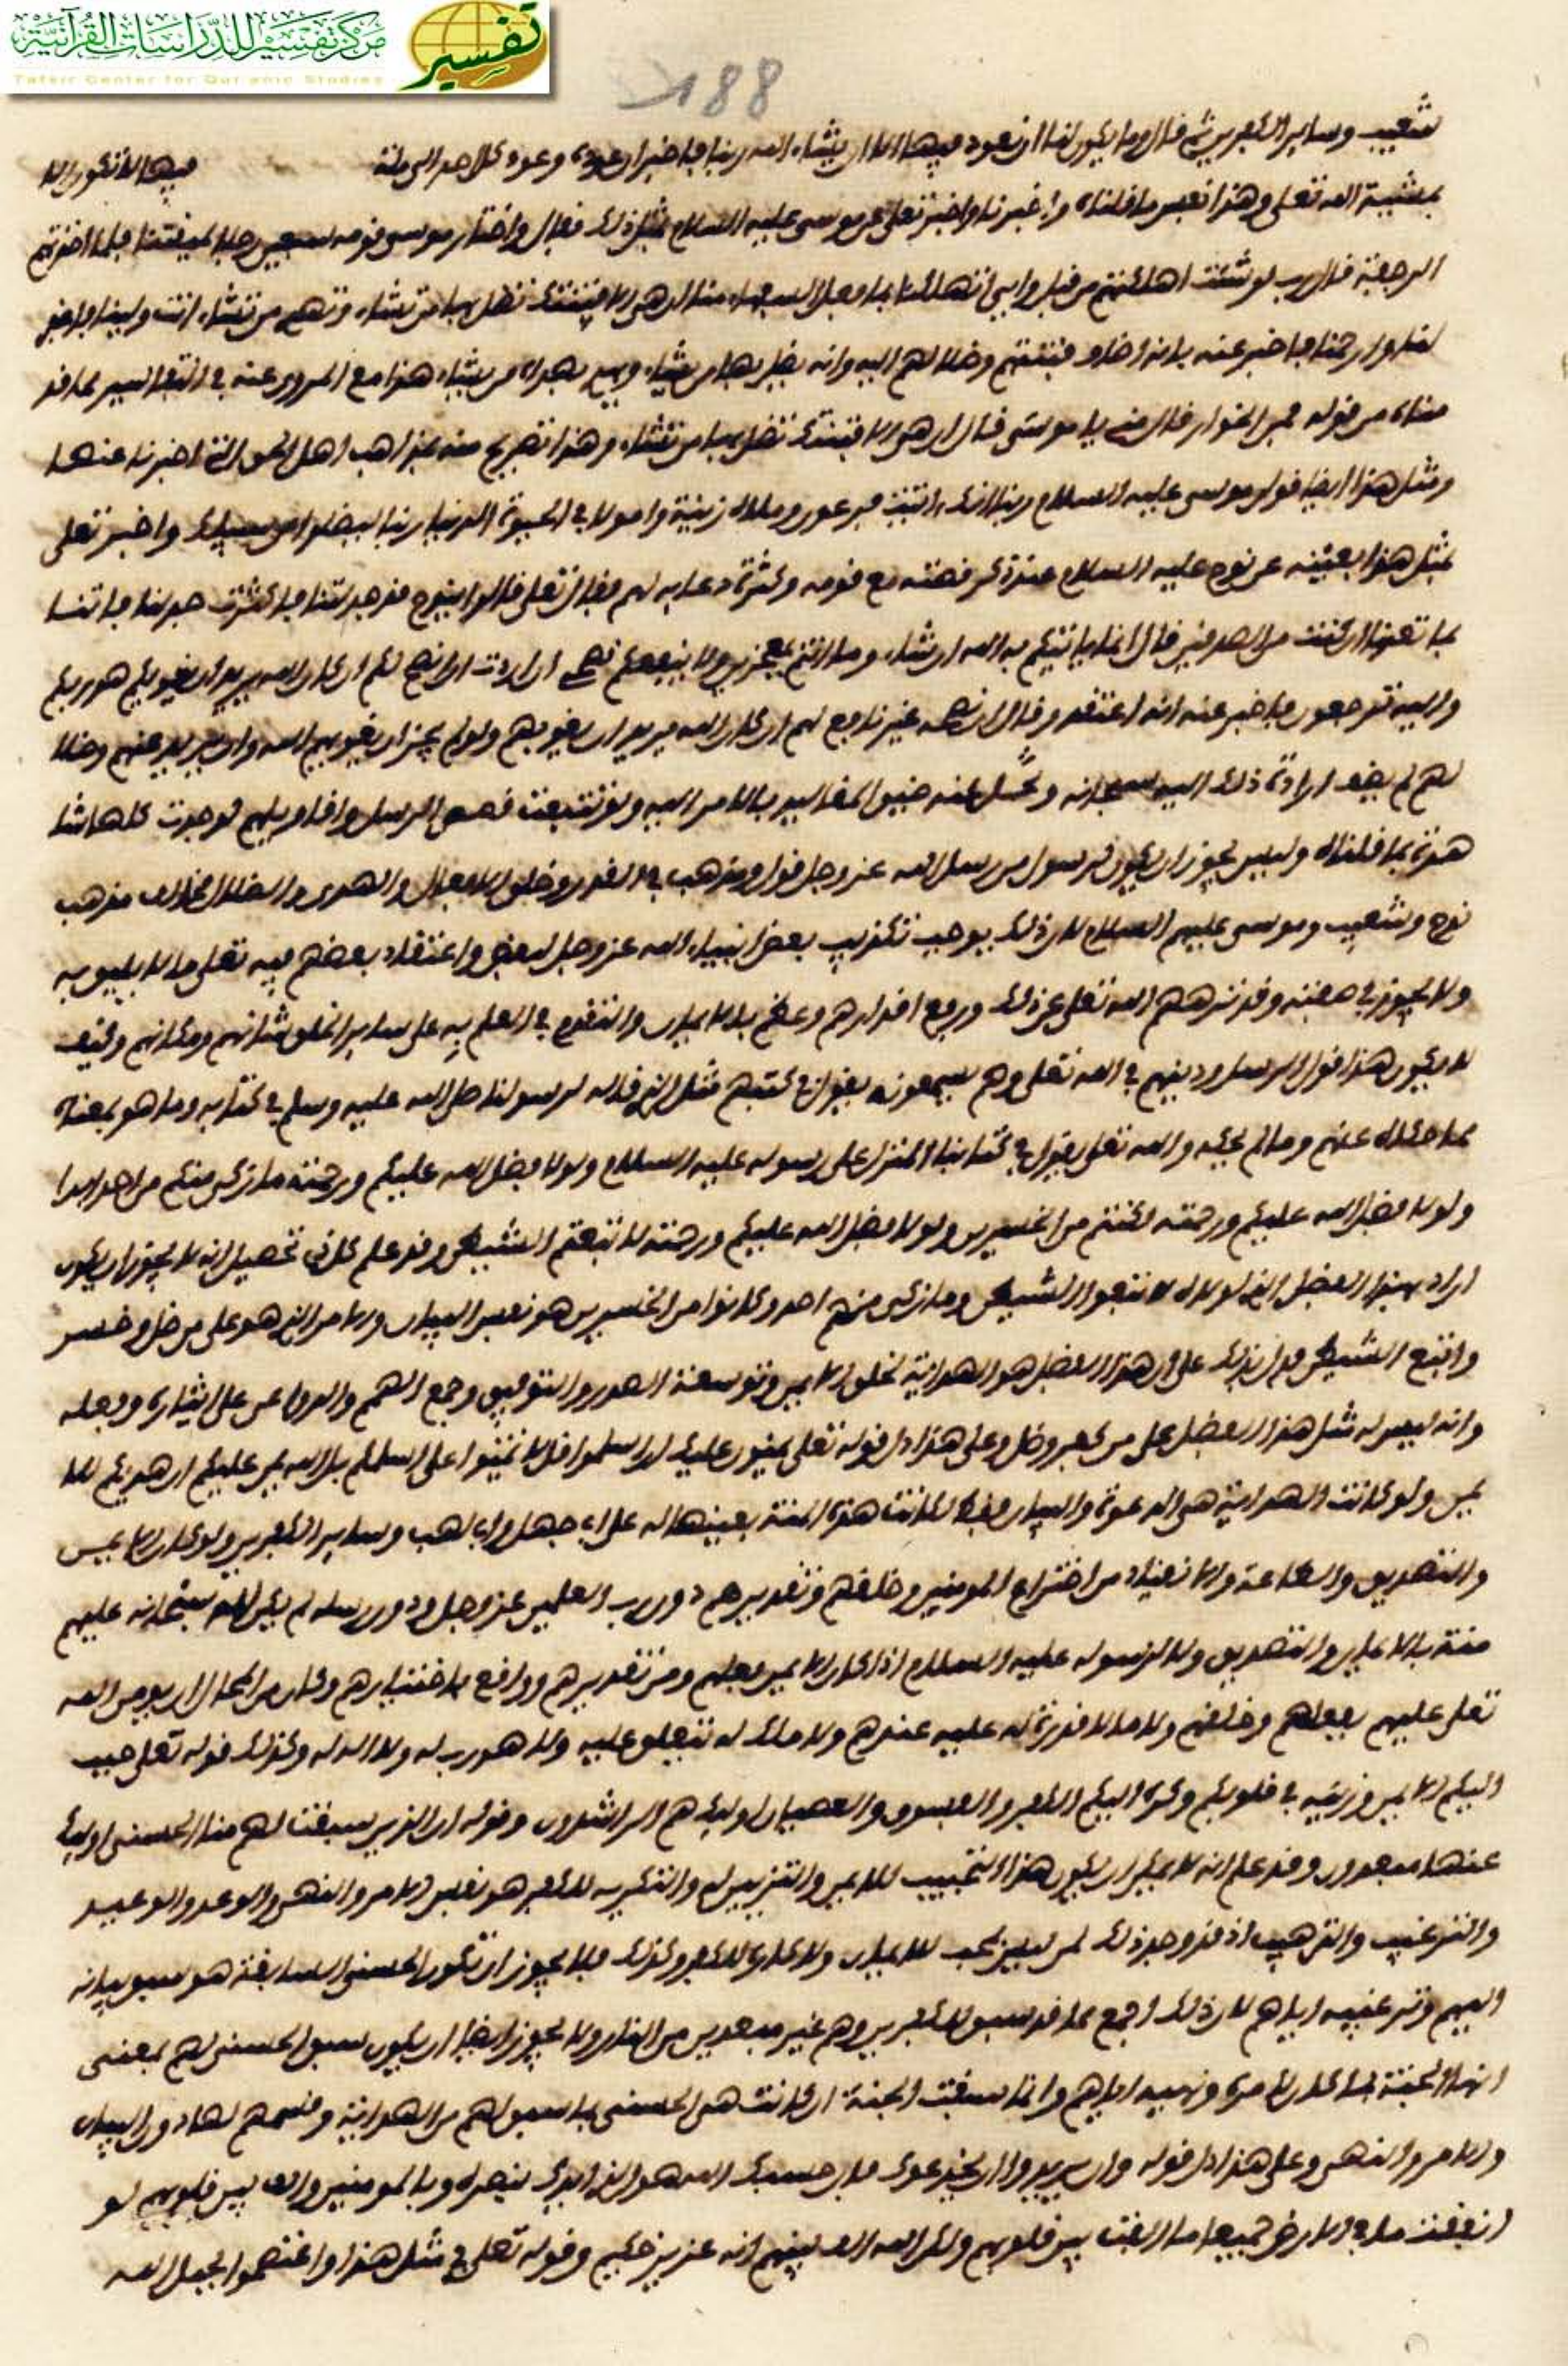 مركز تفسير للدراسات القرآنية
Tafsir Center for Qur'anic Studies
تفسير
188
شعيب وساير الكفرين ثم قال وما يكون لنا ان نعود فيها الا ان يشاء الله ربنا فاخبر ان عوده وعود كل احد الى ملة فيها لا تكون الا
بمشيئة الله تعلى وهذا نفس ما قلناه واخبرنا واخبر تعلى عن موسى عليه السلام بمثل ذلك فقال واختار موسى قومه سبعين رجلا لميقتنا فلما اخذتهم
الرجفة قال رب لو شئت اهلكتهم من قبل واياي اتهلكنا بما فعل السفهاء منا ان هي الا فتنتك تضل بها من تشاء وتهدي من تشاء انت ولينا فاغفر
لنا وارحمنا فاخبر عنه بانه اضاف فتنتهم وضلالهم اليه وانه يضل بها من يشاء ويهدي بهداه من يشاء هذا مع المروي عنه في التفاسير مما قد
من قوله فمن الخوار قال مني يا موسى قال ان هي الا فتنتك تضل بها من تشاء وهذا تصريح منه بمذاهب اهل الحق التي اخبرنا عنها
ومثل هذا ايضا قول موسى عليه السلام ربنا انك اتيت فرعون وملاه زينة واموالا في الحيوة الدنيا ربنا ليضلوا عن سبيلك واخبر تعلى
بمثل هذا بعينه عن نوح عليه السلام عند ذكر قصته مع قومه وكثرة دعايه لهم فقال تعلى قالوا ينوح قد جدلتنا فاكثرت جدلنا فاتنا
بما تعدنا ان كنت من الصدقين قال انما ياتيكم به الله ان شاء وما انتم بمعجزين ولا ينفعكم نصحي ان اردت ان انصح لكم ان كان الله يريد ان يغويكم هو ربكم
واليه ترجعون فاخبر عنه انه اعتقد وقال ان نصحه غير نافع لهم ان كان الله يريد ان يغويهم ولو لم يجز ان يغويهم الله وان يريد غيهم وضلا
لهم لم يضف ارادة ذلك اليه سبحانه وحمل عنه جميع المقاليد بالامر اليه ولو تتبعت قصص الرسل واقاويلهم لوجدت كلها شا
هدة بما قلناه وليس يجوز ان يكون لرسول من رسل الله عز وجل قول ومذهب في القدر وخلق الافعال والهدى والضلال خالف مذهب
نوح وشعيب وموسى عليهم السلام لان ذلك يوجب تكذيب بعض انبياء الله عز وجل لبعض واعتقاد بعضهم فيه تعلى ما لا يليق به
ولا يجوز في صفته وقد نزههم الله تعلى عن ذلك ورفع اقدارهم وعظم بالايمان والتقدم في العلم به على ساير الخلق شانهم ومكانهم وكيف
لا يكون هذا قول الرسل ودينهم في الله تعلى وهم يسمعونه يقول في كتبهم مثل الذي قاله لرسولنا صلى الله عليه وسلم في كتابه وما هو بمعناه
مما حكاه عنهم وما لم يحكه والله تعلى يقول في كتابنا المنزل على رسوله عليه السلام ولولا فضل الله عليكم ورحمته ما زكى منكم من احد ابدا
ولولا فضل الله عليكم ورحمته لكنتم من الخسرين ولولا فضل الله عليكم ورحمته لا تبعتم الشيطن وقد علم كل ذي تحصيل انه لا يجوز ان يكون
اراد بهذا الفضل الذي لولاه لا تبعوا الشيطن وما زكى منهم احد وكانوا من الخسرين هو نفس البيان والامر الذي هو على من ضل وخسر
واتبع الشيطن فدل بذلك على ان هذا الفضل هو الهداية بخلق الايمن وتوسعة الصدر والتوفيق وجمع الهمم والدواعي على ايثاره وفعله
وانه ليس له مثل هذا الفضل على من كفر وضل وعلى هذا دل قوله تعلى يمنون عليك ان اسلموا قل لا تمنوا على اسلمكم بل الله يمن عليكم ان هديكم للا
يمن ولو كانت الهداية هي الدعوة والبيان فقط لكانت هذه المنة بعينها له على ابي جهل وابي لهب وساير الكفرين ولو كان الايمن
والتصديق والطاعة والانقياد من اختراع المومنين وخلقهم وتقديرهم دون رب العلمين عز وجل ودون رسله لم يكن لله سبحانه عليهم
منة بالايمان والتصديق ولا لرسوله عليه السلام اذا كان الايمن فعلهم ومن تقديرهم وواقع باختيارهم وكان من المحال ان يمن الله
تعلى عليهم بفعلهم وخلقهم ولا ما لا قدرة له عليه عندهم ولا ملك له تتعلق عليه ولا هو رب له ولا اله له وكذلك قوله تعلى حبب
اليكم الايمن وزينه في قلوبكم وكره اليكم الكفر والفسوق والعصيان اوليك هم الراشدون وقوله ان الذين سبقت لهم منا الحسنى اوليك
عنها مبعدون وقد علم انه لا يمكن ان يكون هذا التحبيب للايمن والتزيين له والتكريه للكفر هو نفس الامر والنهي والوعد والوعيد
والترغيب والترهيب اذ قد وجد ذلك لمن ليس بمحب للايمان ولا كاره للكفر وكذلك فلا يجوز ان تكون الحسنى السابقة هو سبق بيانه
اليهم وترغيبه اياهم لان ذلك اجمع مما قد سبق للكفرين وهم غير مبعدين من النار ولا يجوز ايضا ان يكون سبق الحسنى لهم بمعنى
انها الجنة كان امره ونهيه اياهم وانما سبقت الجنة ان كانت هي الحسنى بما سبق لهم من الهداية وقسمهم لها دون البيان
والامر والنهي وعلى هذا دل قوله وان يريدوا ان يخدعوك فان حسبك الله هو الذي ايدك بنصره وبالمومنين والف بين قلوبهم لو
انفقت ما في الارض جميعا ما الفت بين قلوبهم ولكن الله الف بينهم انه عزيز حكيم وقوله تعلى في مثل هذا واعتصموا بحبل الله